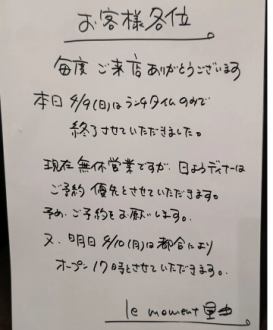 お客様各位
毎度 ご来店ありがとうございます
本日 4/9(日)は ランチタイムのみで
終了させていただきました。
現在 無休営業ですが、日ようディナーは
ご予約 優先とさせていただきます。
予め、ご予約をお願いします。
又、明日 4/10(月)は 都合により
オープン 17時とさせていただきます。
le moment